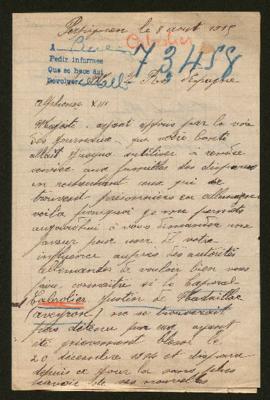 Perpignan le 8 août 1915
A
Pedir informes
Que se hace aquí
Devolver
73458
Cabrolier
Roi d'Espagne
Alphonse XIII
Majesté, ayant appris par la voie
des journaux, que votre bonté
allait jusqu'à
service aux familles des disparus
en recherchant ceux qui se
trouvent prisonniers en Allemagne
voilà pourquoi je me permets
aujourd'hui à vous demander une
faveur pour user de votre
influence auprès des autorités
allemandes à vouloir bien vous
faire connaître si le Caporal
Cabrolier Justin de Nadaillac
(Aveyron) ne se trouverait
pas détenu par eux, ayant
été grièvement blessé le
20 décembre 1914 et disparu
depuis ce jour là sans plus
savoir de ses nouvelles